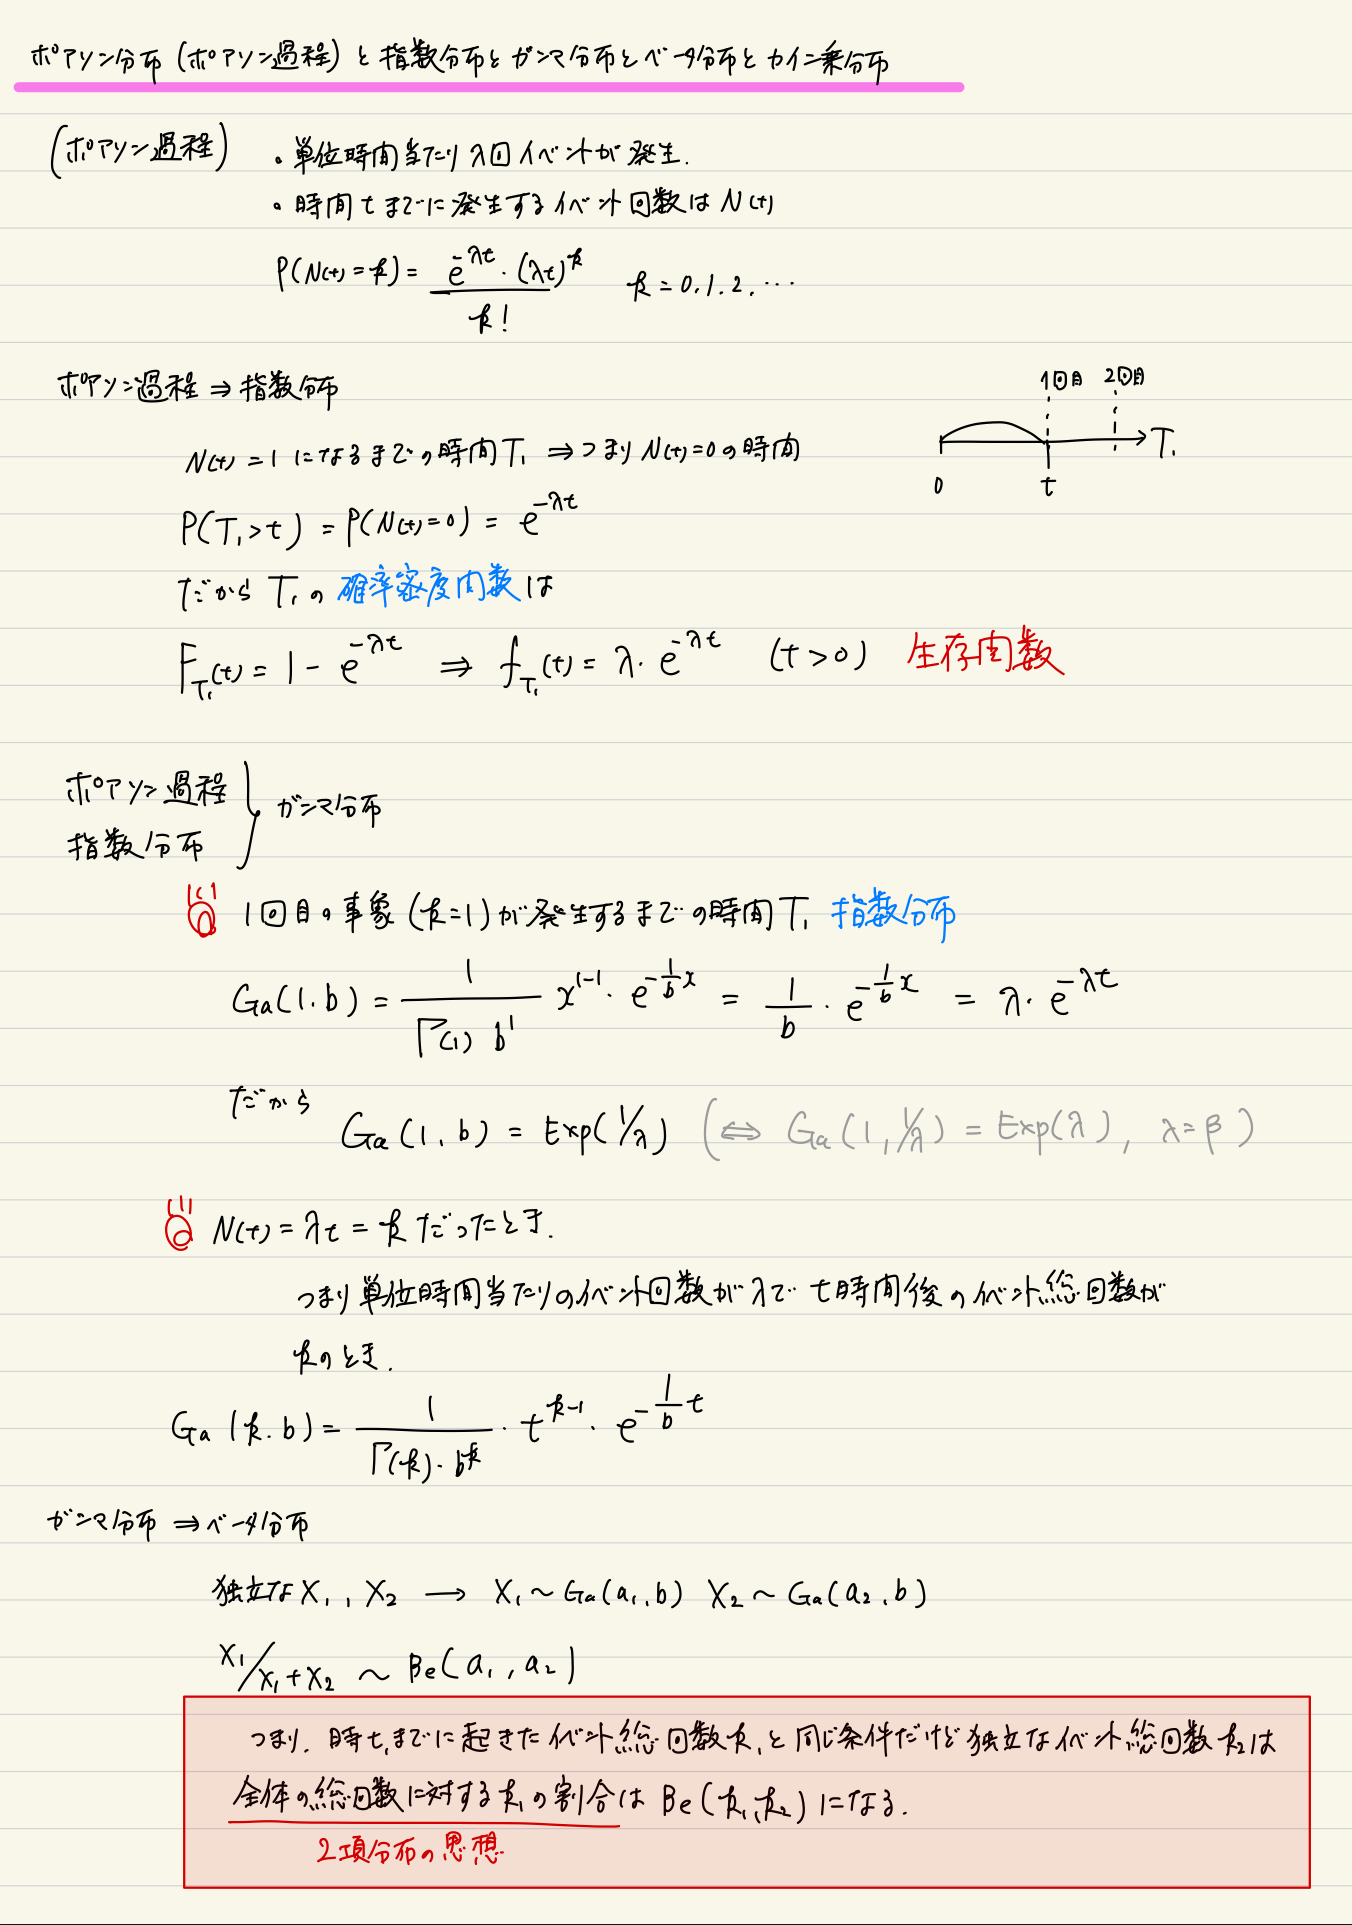 ポアソン分布 (ポアソン過程) と 指数分布と ガンマ分布と ベータ分布と カイ二乗分布
(ポアソン過程)
・単位時間当たり λ回 イベントが 発生.
・時間 t までに発生する イベント回数は N(t)
P(N(t)=k) = e^{-λt}・(λt)^k / k!   k = 0.1.2.…
ポアソン過程 ⇒ 指数分布
1回目 2回目
N(t) = 1 になるまでの時間 T₁ ⇒つまり N(t)=0の時間
0 t T₁
P(T₁>t) = P(N(t)=0) = e^{-λt}
だから T₁の 確率密度関数は
F_{T₁}(t) = 1 - e^{-λt} ⇒ f_{T₁}(t) = λ・e^{-λt} (t>0) 生存関数
ポアソン過程
指数分布
} ガンマ分布
1回目の事象 (k=1)が発生するまでの時間 T₁ 指数分布
Ga(1.b) = 1/(Γ(1) b^1) x^{1-1}・e^{-\frac{1}{b}x} = 1/b・e^{-\frac{1}{b}x} = λ・e^{-λt}
だから
Ga(1, b) = Exp(1/λ) (⇔ Ga(1, 1/λ) = Exp(λ), λ=β)
N(t) = λt = k だったとき.
つまり 単位時間当たりのイベント回数が λで t時間後のイベント総回数が
kのとき.
Ga(k.b) = 1/(Γ(k)・b^k)・t^{k-1}・e^{-\frac{1}{b}t}
ガンマ分布 ⇒ベータ分布
独立な X₁, X₂ → X₁ ~ Ga(a₁, b) X₂ ~ Ga(a₂, b)
X₁/X₁+X₂ ~ Be(a₁, a₂)
つまり. 時t₁までに起きた イベント総回数k₁と 同じ条件だけど 独立なイベント総回数 k₂は
全体の総回数に対するk₁の割合は Be(k₁,k₂)になる.
2項分布の思想